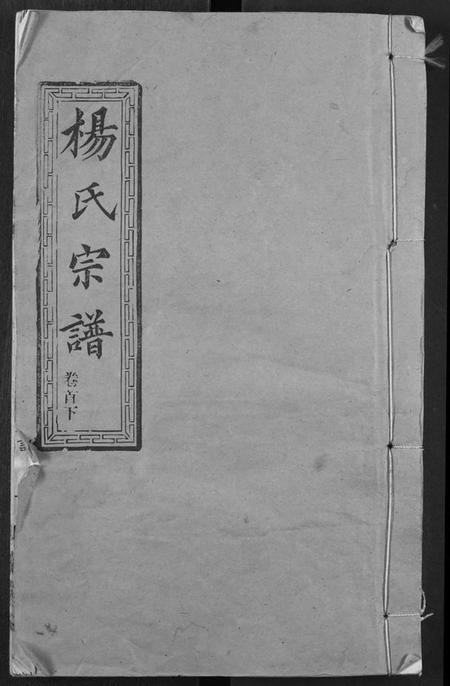 楊氏宗譜
卷首下